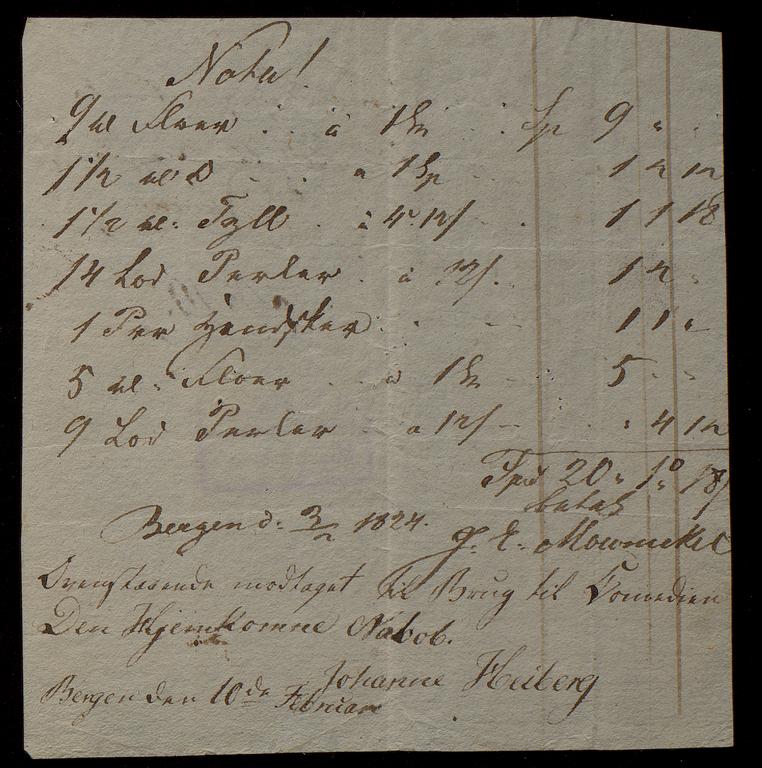 Nota!
9 al Floer . . à 1 Sp . . Sp 9 " "
1 1/2 al D . . a 1 Sp 1 2 12
1 1/2 al: Tyll . à 4. 12/ . 1 1 18
14 Lod Perler . à 12/. 1 2 "
1 Par Handsker . - - 1 1 "
5 al: Floer . . à 1 Sp - 5 " "
9 Lod Perler - a 12/ - - " 4 12
Spd 20 " 1 " 18/
Bergen d: 3/2 1824. betalt
J. E. Mowinckel
Ovenstaaende modtaget til Brug til Comedien
Den Hjemkomne Nabob.
Johanne Heiberg
Bergen den 10de Februar